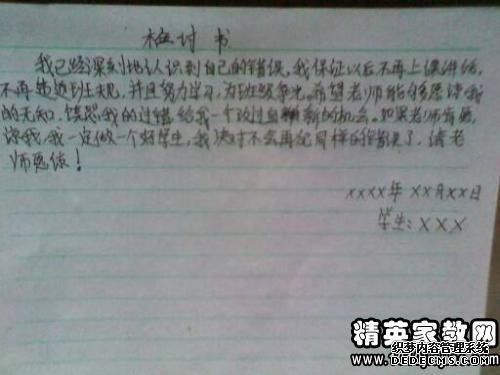 检讨书
我已经深刻地认识到自己的错误,我保证以后不再上课讲话,
不再违反班规,并且努力学习,为班级争光。希望老师能够原谅我
的无知,饶恕我的过错给我一个改过自新的机会。如果老师肯原
谅我,我一定做一个好学生,我决对不会再犯同样的错误了,请老
师原谅!
xxxx年xx月xx日
学生:XXX
精英家教网
织梦内容管理系统
DEDECMS.COM